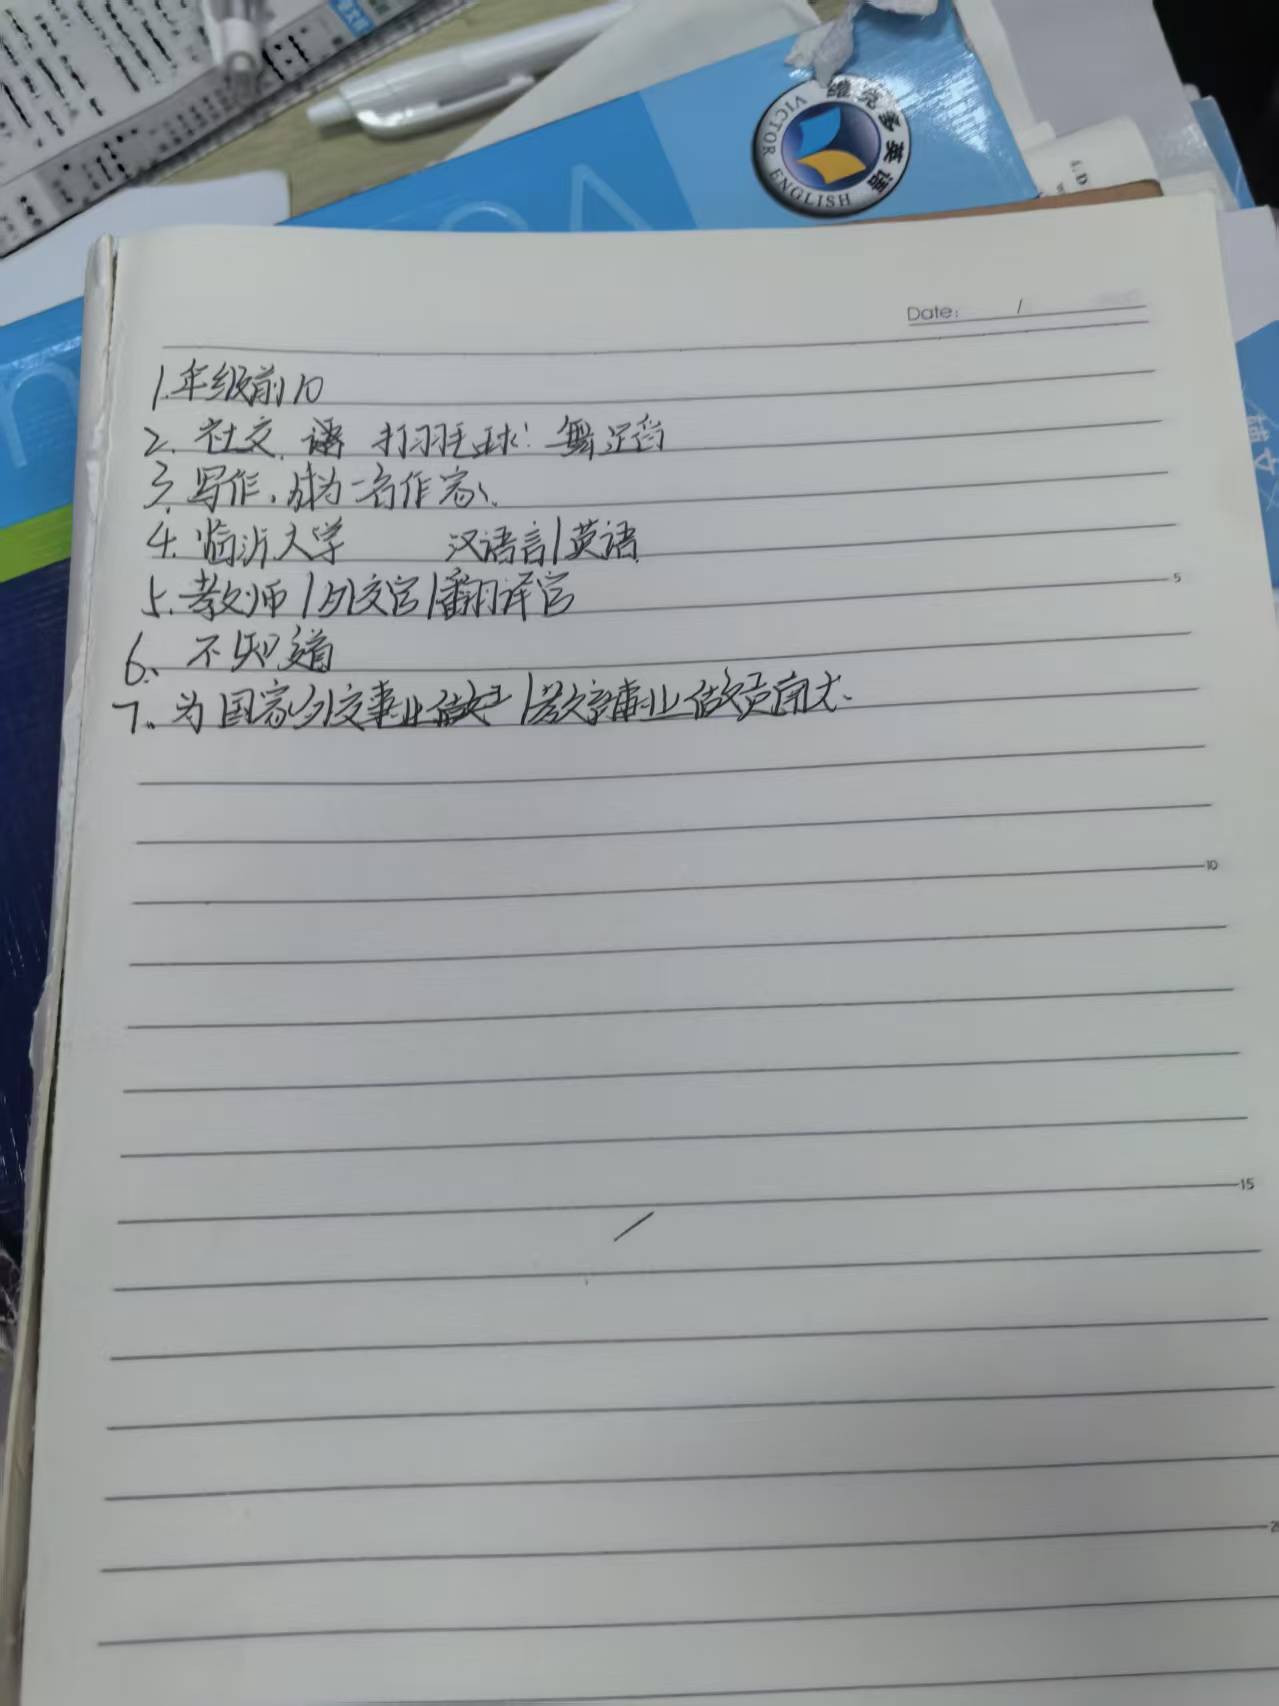 维克多英语
VICTOR ENGLISH
Date: /
1.年级前10
2. 社交、语 打羽毛球! 舞蹈
3.写作,成为一名作家、
4.临沂大学 汉语言/英语
5.教师/外交官/翻译官
6、不知道
7、为国家外交事业做 /教育事业做贡献、
5
10
15